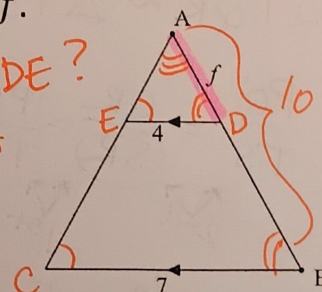 f.
DE?
A
f
10
E
D
4
C
7